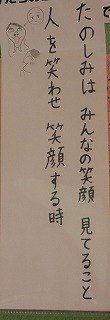 たのしみは みんなの笑顔 見てること
人を笑わせ 笑顔する時